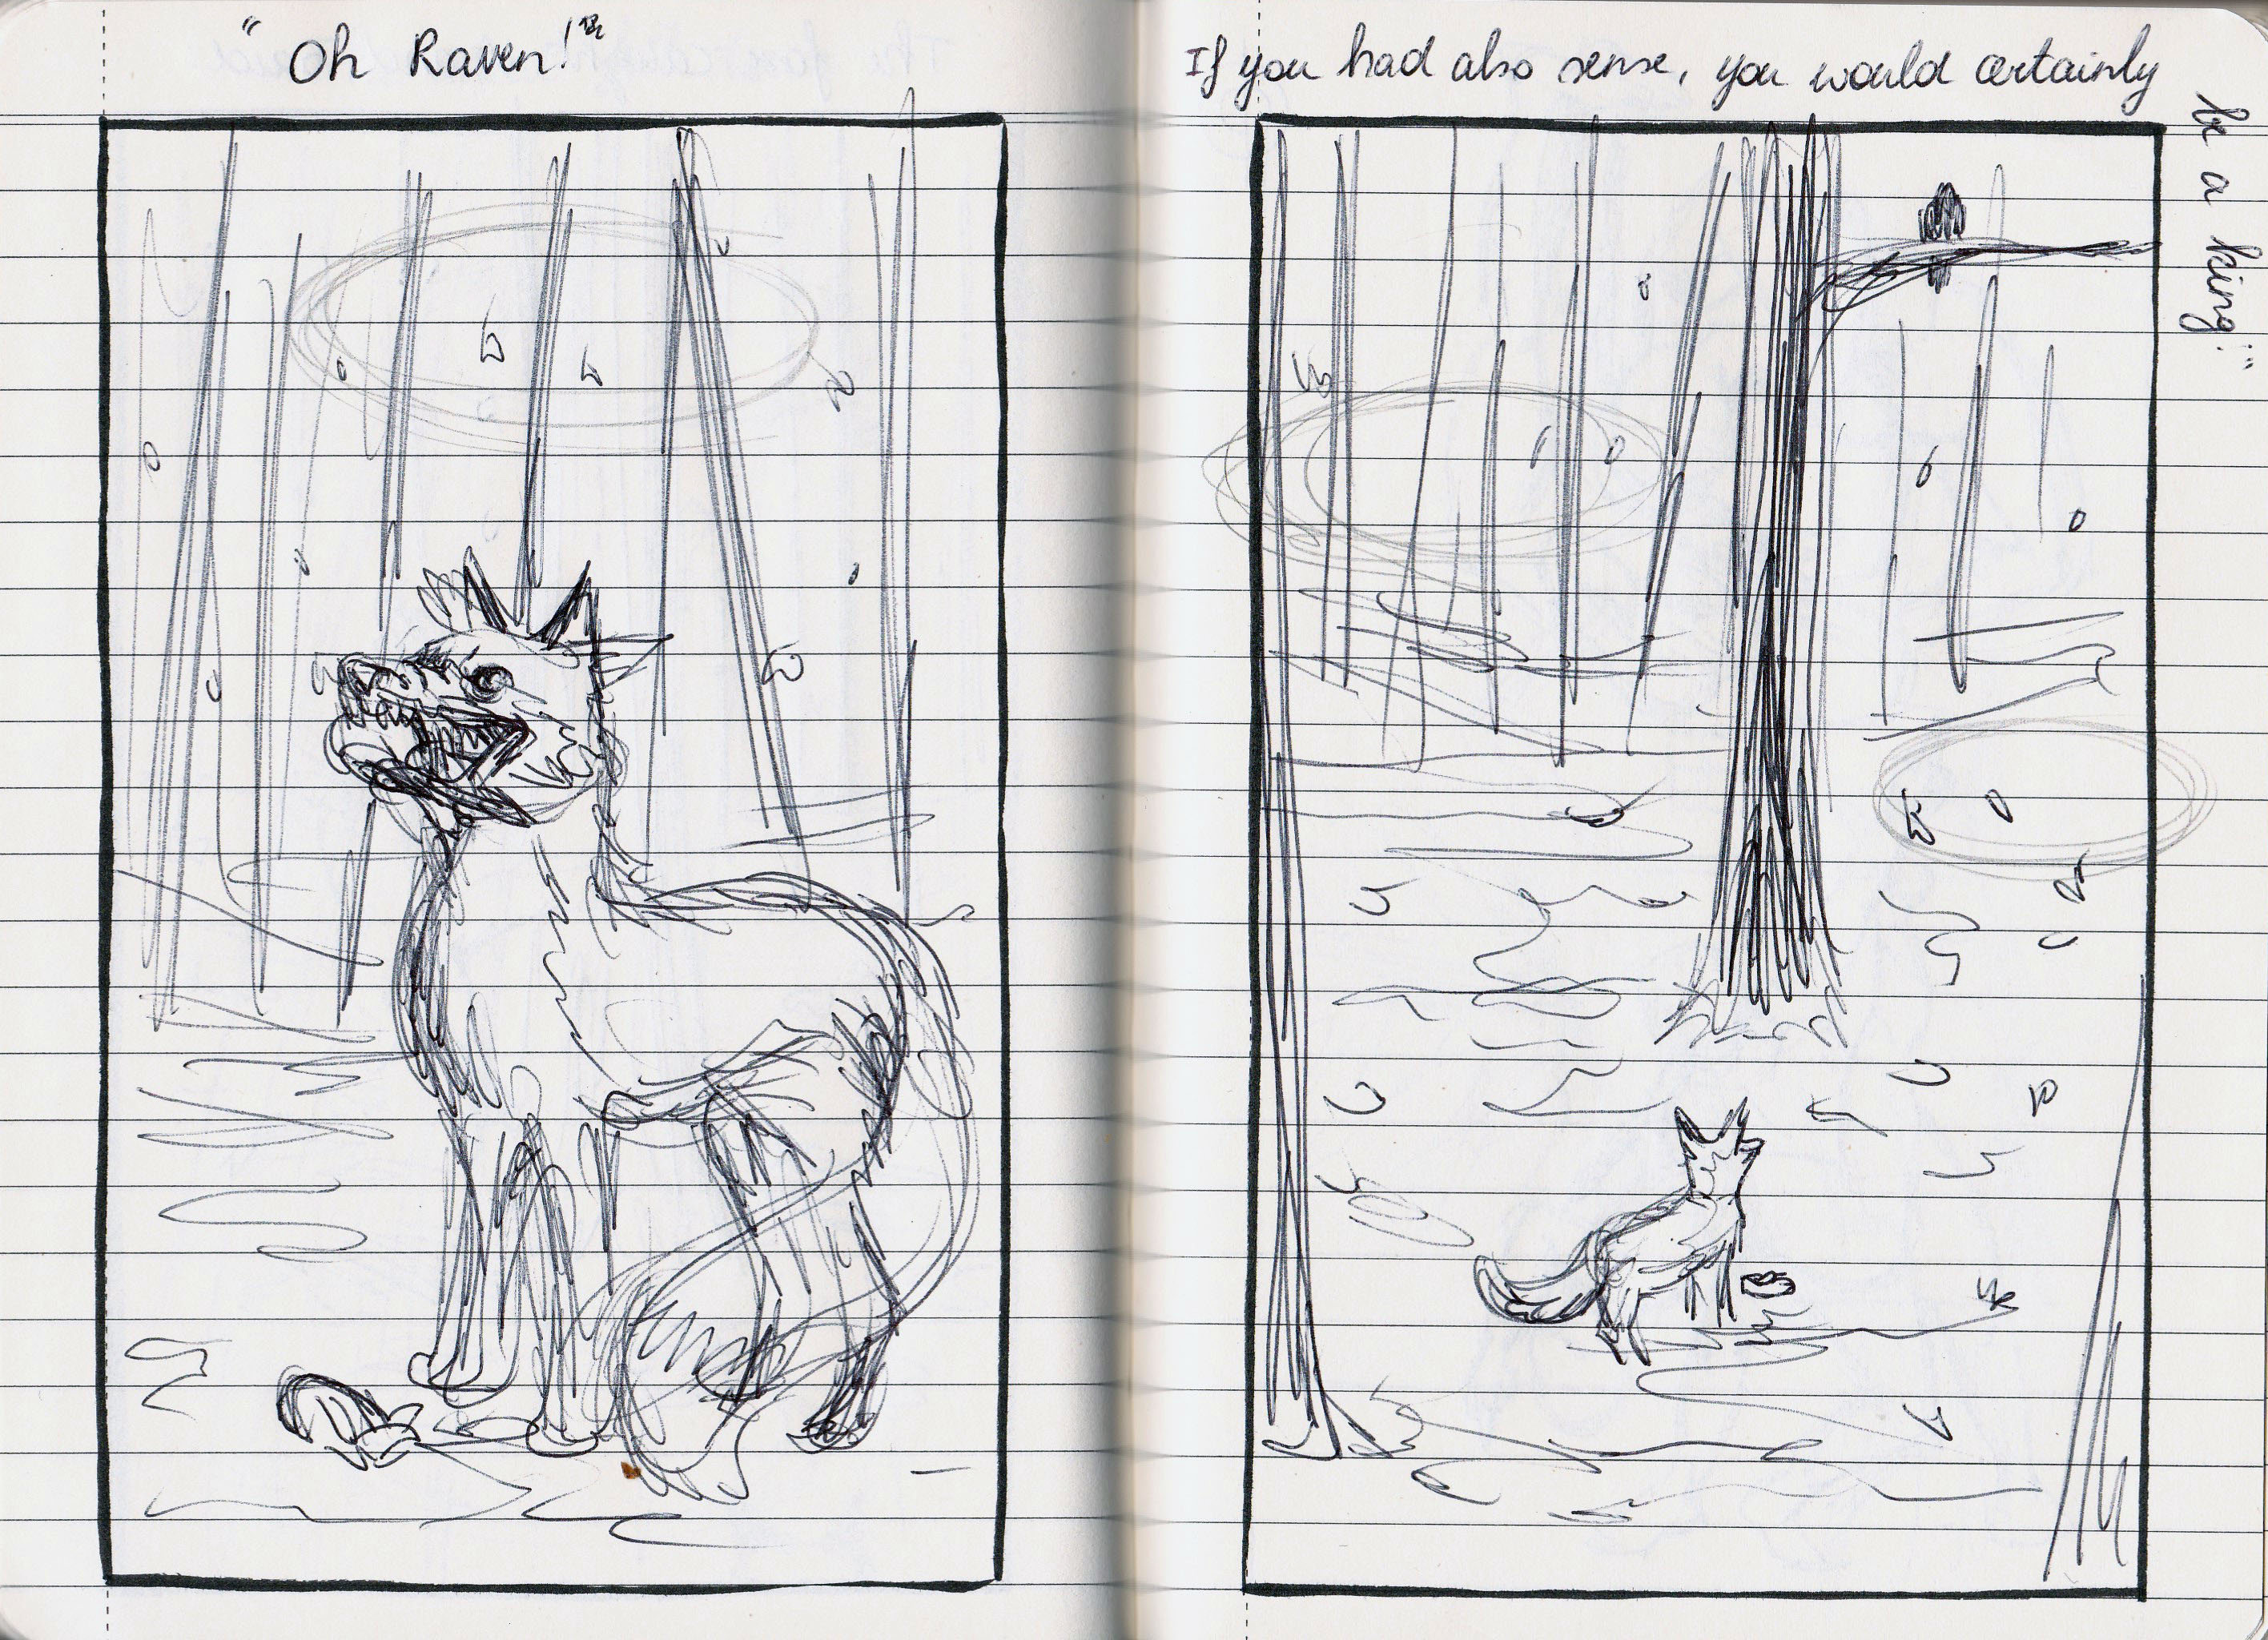 "Oh Raven!"
If you had also sense, you would certainly
be a king!"